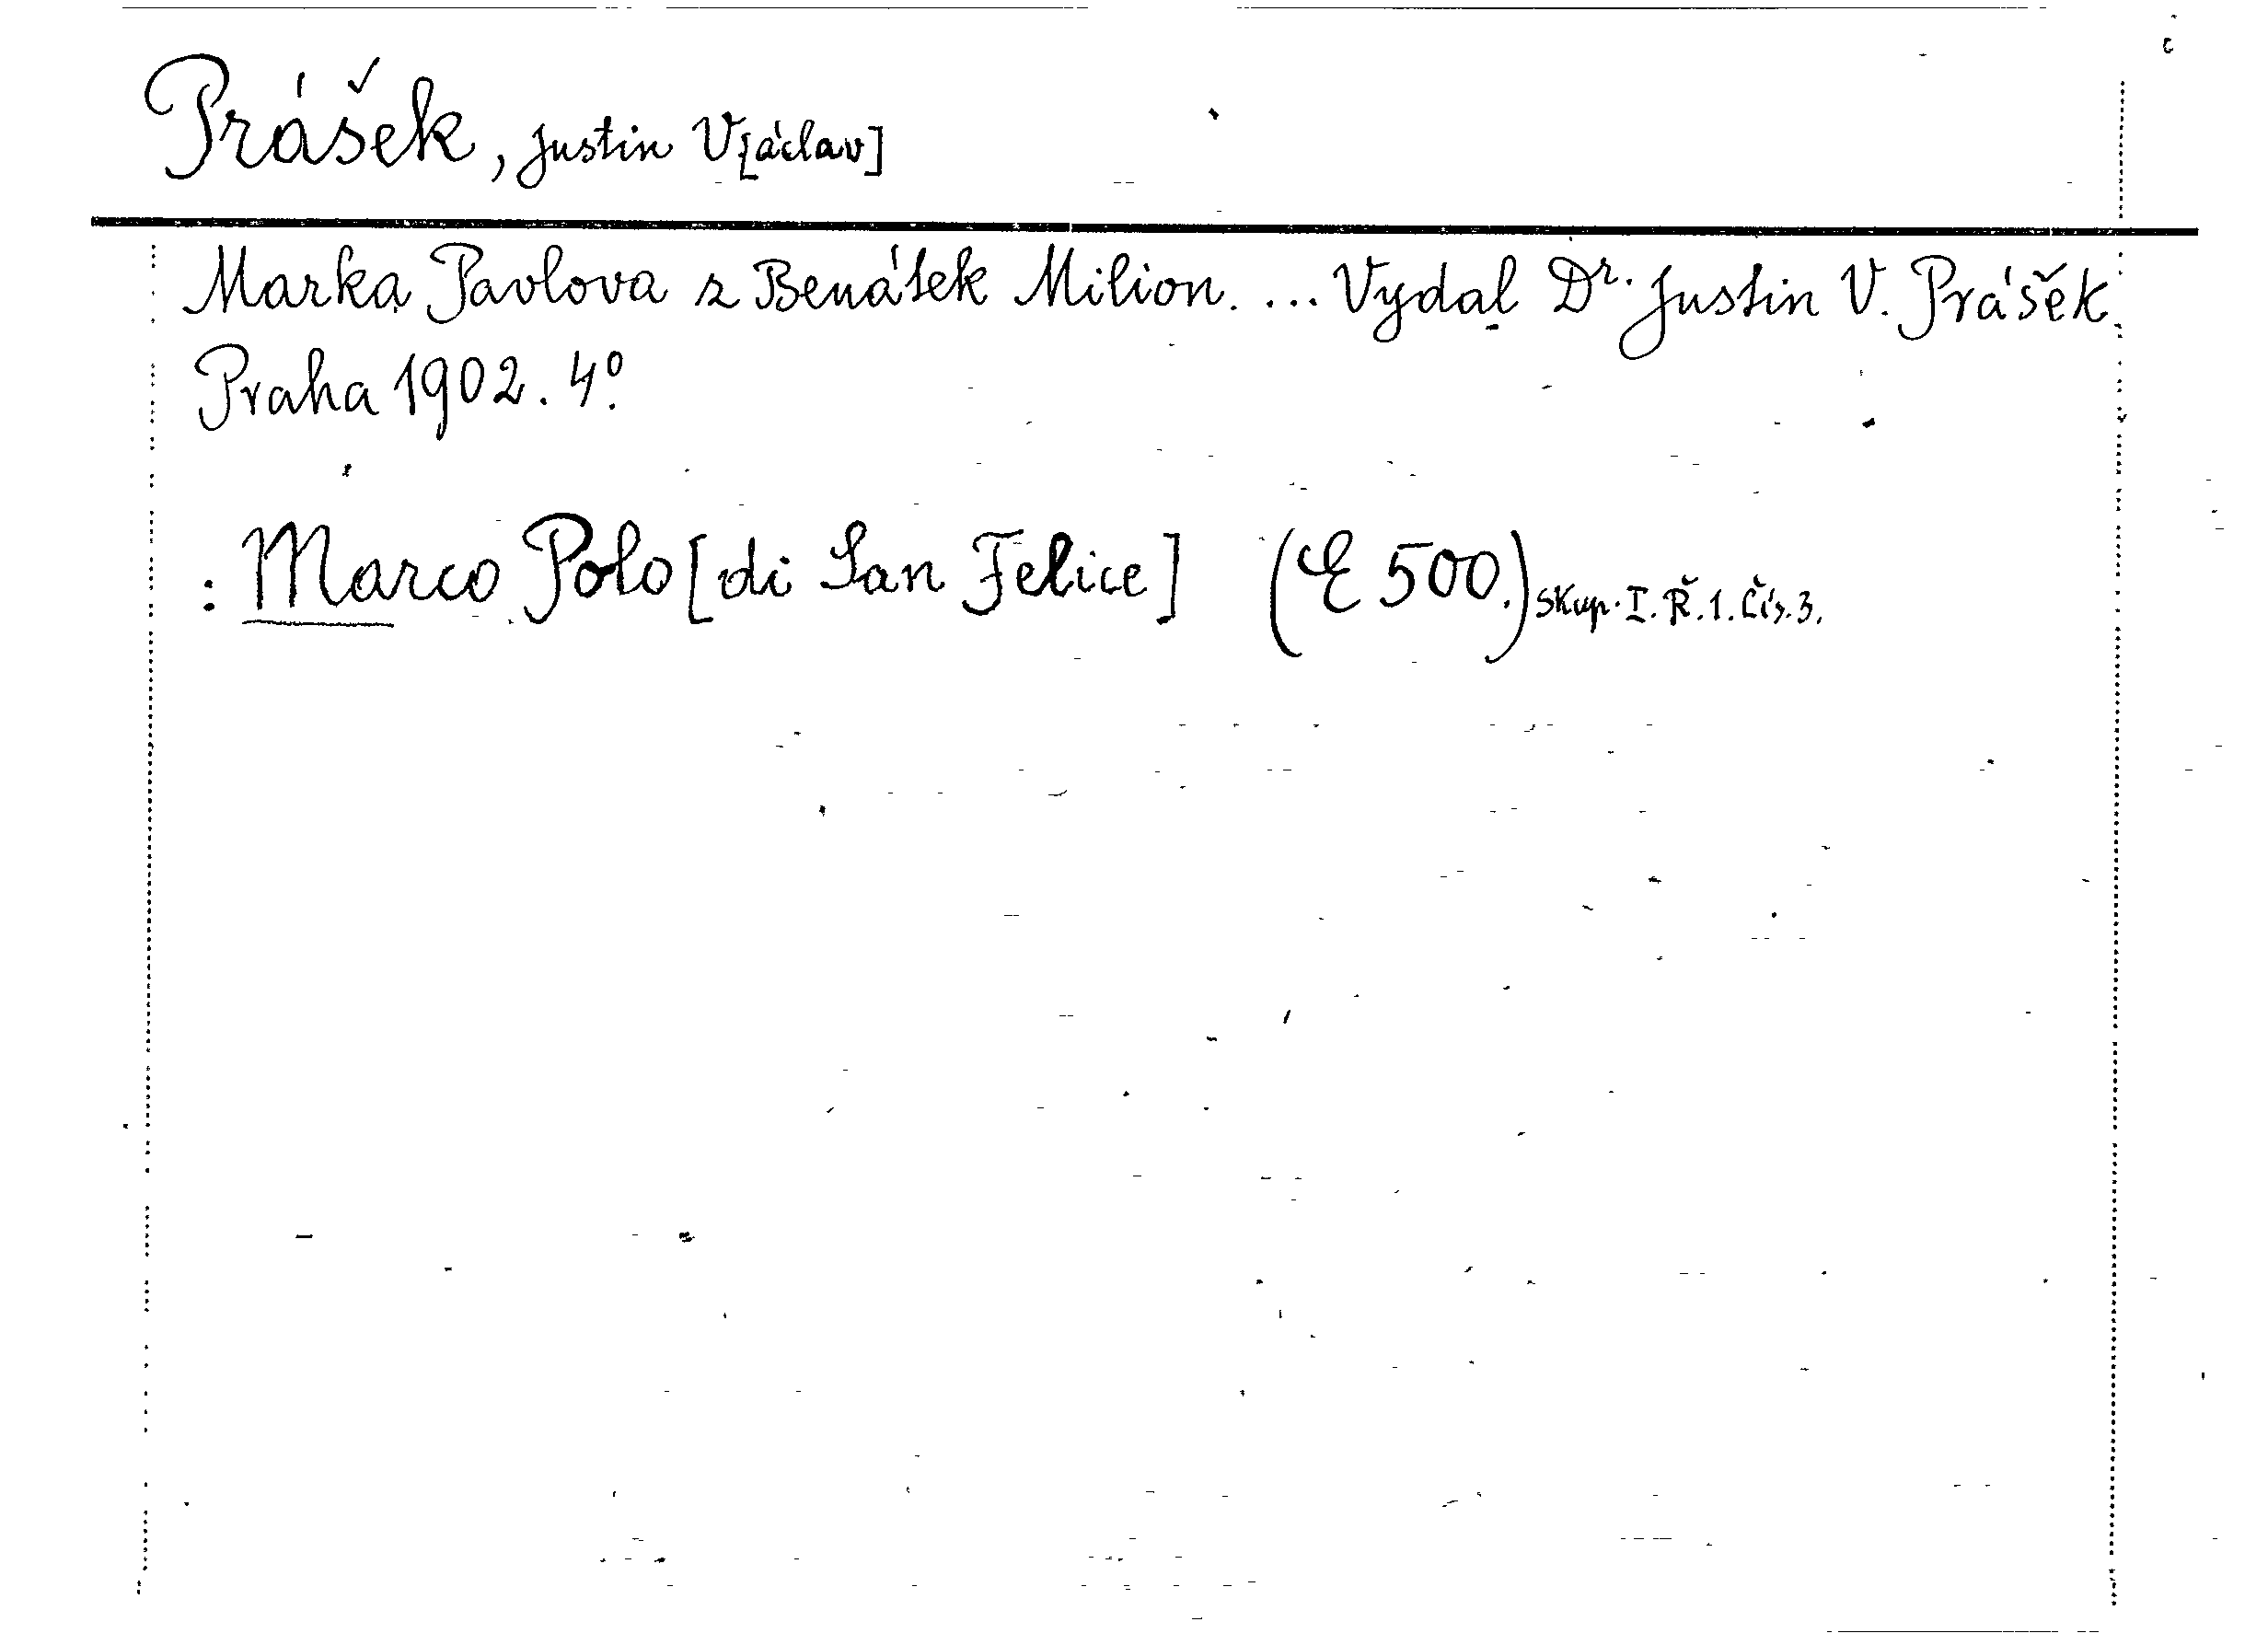 Prášek, Justin V[áclav]
Marka Pavlova z Benátek Milion. ... Vydal Dr. Justin V. Prášek.
Praha 1902. 4°.
: Marco Polo [di San Felice] (E 500.) Skup. I. Ř. 1. Čís. 3.